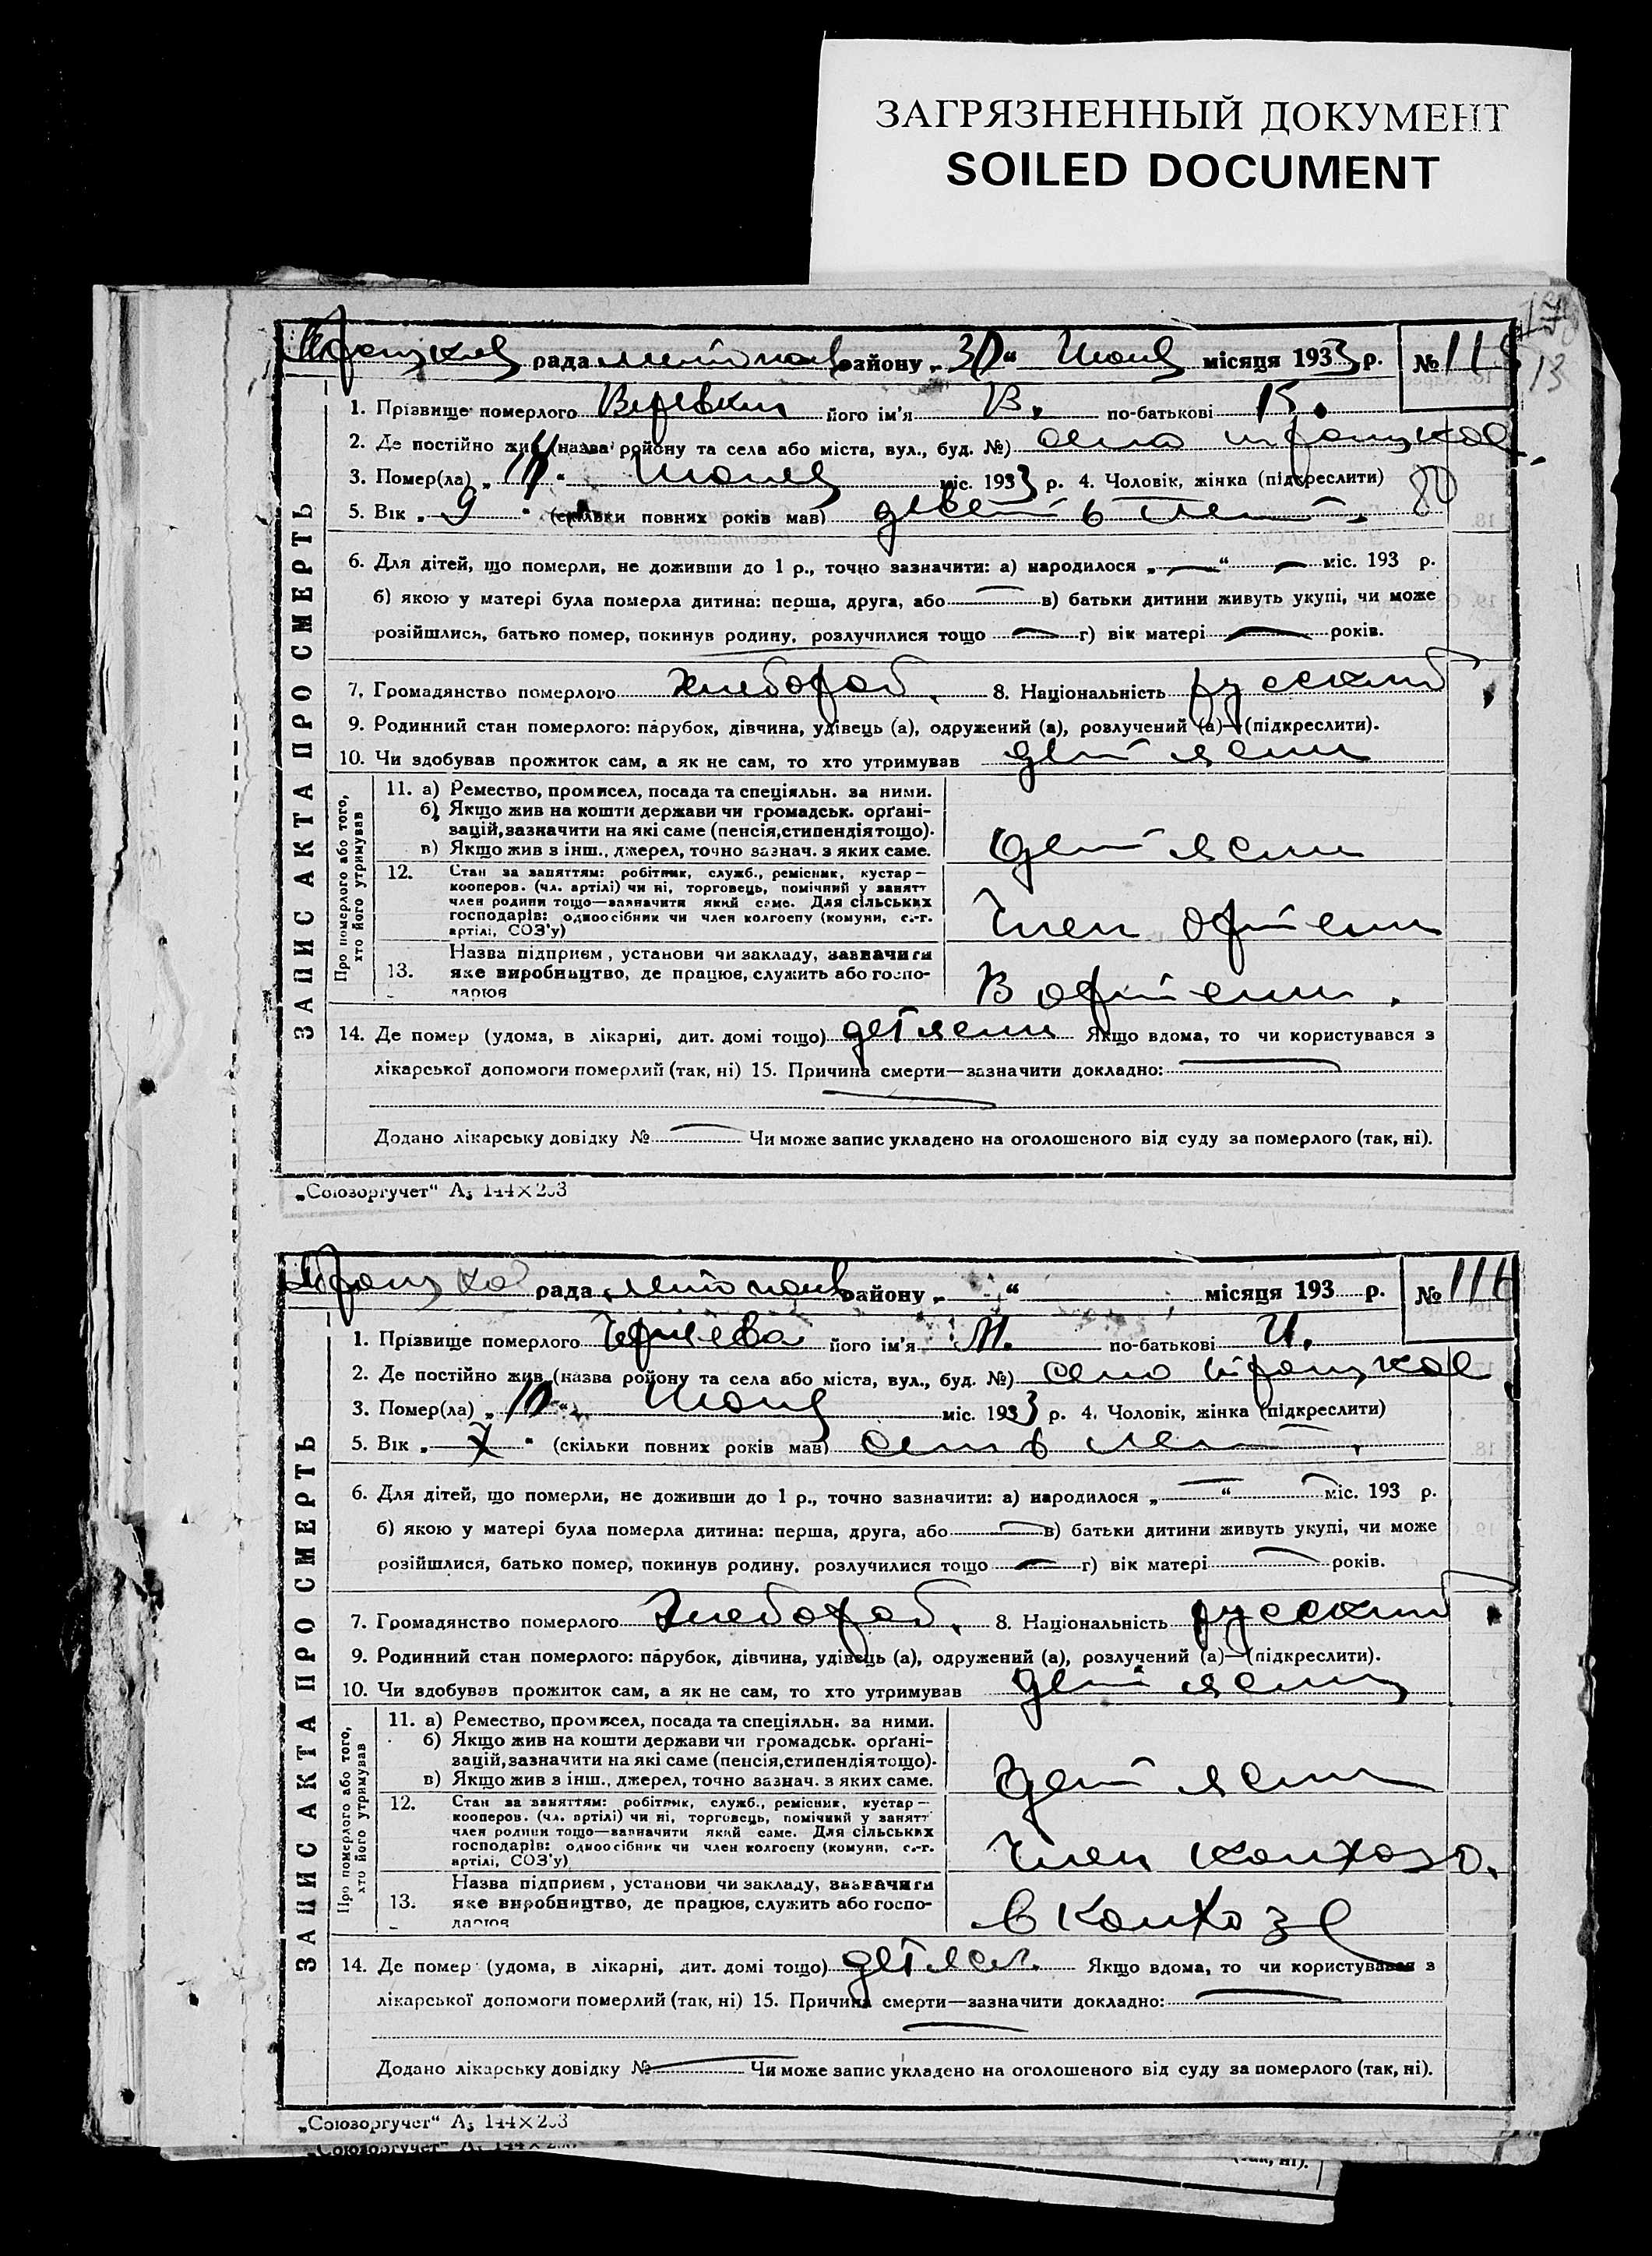 ЗАГРЯЗНЕННЫЙ ДОКУМЕНТ
SOILED DOCUMENT
13
рада района „30“ Июня місяця 1933 р. № 115
1. Прізвище померлого Веревкин його ім'я В. по-батькові К.
2. Де постійно жив (назва ройону та села або міста, вул., буд. №) село троицкое
3. Помер(ла) „ “ Июня міс. 1933 р. 4. Чоловік, жінка (підкреслити)
5. Вік „ 9 “ (скільки повних років мав) деветь лет.
6. Для дітей, що померли, не доживши до 1 р., точно зазначити: а) народилося „ — “ — міс. 193 р.
б) якою у матері була померла дитина: перша, друга, або — в) батьки дитини живуть укупі, чи може
розійшлися, батько помер, покинув родину, розлучилися тощо — г) вік матері — років.
7. Громадянство померлого хлебороб. 8. Національність русский
9. Родинний стан померлого: парубок, дівчина, удівець (а), одружений (а), розлучений (а)—(підкреслити).
10. Чи здобував прожиток сам, а як не сам, то хто утримував дет ясли
ЗАПИС АКТА ПРО СМЕРТЬ
Про померлого або того, хто його утримував
11. а) Ремество, промисел, посада та спеціяльн. за ними.
б) Якщо жив на кошти держави чи громадськ. орґані-
зацій, зазначити на які саме (пенсія, стипендія тощо).
в) Якщо жив з інш., джерел, точно зазнач. з яких саме.
дет ясли
12. Стан за заняттям: робітник, служб., ремісник, кустар—
кооперов. (чл. артілі) чи ні, торговець, помічний у занятт
член родини тощо—зазначити який саме. Для сільських
господарів: одноосібник чи член колгоспу (комуни, с.-г.
артілі, СОЗ'у)
Член артели
13. Назва підприєм, установи чи закладу, зазначити
яке виробництво, де працює, служить або госпо-
дарює
В артели.
14. Де помер (удома, в лікарні, дит. домі тощо) дет ясли Якщо вдома, то чи користувався з
лікарської допомоги померлий (так, ні) 15. Причина смерти—зазначити докладно: —
Додано лікарську довідку № — Чи може запис укладено на оголошеного від суду за померлого (так, ні).
„Союзоргучет“ А₅ 144×203
рада району „ “ місяця 193 р. № 116
1. Прізвище померлого його ім'я М. по-батькові И.
2. Де постійно жив (назва ройону та села або міста, вул., буд. №) село троицкое
3. Помер(ла) „ 10 “ Июня міс. 1933 р. 4. Чоловік, жінка (підкреслити)
5. Вік „ 7 “ (скільки повних років мав) семь лет.
6. Для дітей, що померли, не доживши до 1 р., точно зазначити: а) народилося „ — “ — міс. 193 р.
б) якою у матері була померла дитина: перша, друга, або — в) батьки дитини живуть укупі, чи може
розійшлися, батько помер, покинув родину, розлучилися тощо — г) вік матері — років.
7. Громадянство померлого Хлебороб. 8. Національність русский
9. Родинний стан померлого: парубок, дівчина, удівець (а), одружений (а), розлучений (а)—(підкреслити).
10. Чи здобував прожиток сам, а як не сам, то хто утримував дет ясли
ЗАПИС АКТА ПРО СМЕРТЬ
Про померлого або того, хто його утримував
11. а) Ремество, промисел, посада та спеціяльн. за ними.
б) Якщо жив на кошти держави чи громадськ. орґані-
зацій, зазначити на які саме (пенсія, стипендія тощо).
в) Якщо жив з інш., джерел, точно зазнач. з яких саме.
дет ясли
12. Стан за заняттям: робітник, служб., ремісник, кустар—
кооперов. (чл. артілі) чи ні, торговець, помічний у занятт
член родини тощо—зазначити який саме. Для сільських
господарів: одноосібник чи член колгоспу (комуни, с.-г.
артілі, СОЗ'у)
Член колхоза.
13. Назва підприєм, установи чи закладу, зазначити
яке виробництво, де працює, служить або госпо-
дарює
в колхозе
14. Де помер (удома, в лікарні, дит. домі тощо) дет ясл. Якщо вдома, то чи користувався з
лікарської допомоги померлий (так, ні) 15. Причина смерти—зазначити докладно: —
Додано лікарську довідку № — Чи може запис укладено на оголошеного від суду за померлого (так, ні).
„Союзоргучет“ А₅ 144×203